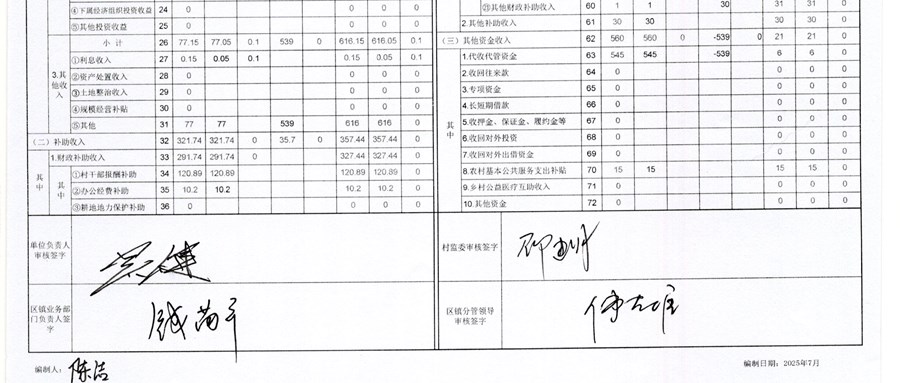 ④下属经济组织投资收益 24 0 0 0
⑤其他投资收益 25 0 0 0
3.其他收入
小计 26 77.15 77.05 0.1 539 0 616.15 616.05 0.1
①利息收入 27 0.15 0.05 0.1 0.15 0.05 0.1
②资产处置收入 28 0 0 0 0
③土地整治收入 29 0 0 0 0
④规模经营补贴 30 0 0 0 0
⑤其他 31 77 77 539 616 616 0
(二)补助收入 32 321.74 321.74 0 35.7 0 357.44 357.44 0
1.财政补助收入 33 291.74 291.74 0 327.44 327.44 0
其中
①村干部报酬补助 34 120.89 120.89 120.89 120.89 0
②办公经费补助 35 10.2 10.2 10.2 10.2 0
③耕地地力保护补助 36 0 0 0 0
其他财政补助收入 60 1 1 30 31 31 0
2.其他补助收入 61 30 30 30 30 0
(三)其他资金收入 62 560 560 0 -539 0 21 21 0
其中
1.代收代管资金 63 545 545 -539 6 6 0
2.收回往来款 64 0 0 0 0
3.专项资金 65 0 0 0 0
4.长短期借款 66 0 0 0 0
5.收押金、保证金、履约金等 67 0 0 0 0
6.收回对外投资 68 0 0 0 0
7.收回对外出借资金 69 0 0 0 0
8.农村基本公共服务支出补贴 70 15 15 15 15 0
9.乡村公益医疗互助收入 71 0 0 0 0
10.其他资金 72 0 0 0 0
单位负责人审核签字
村监委审核签字
区镇业务部门负责人签字
区镇分管领导审核签字
编制人: 陈洁
编制日期:2025年7月